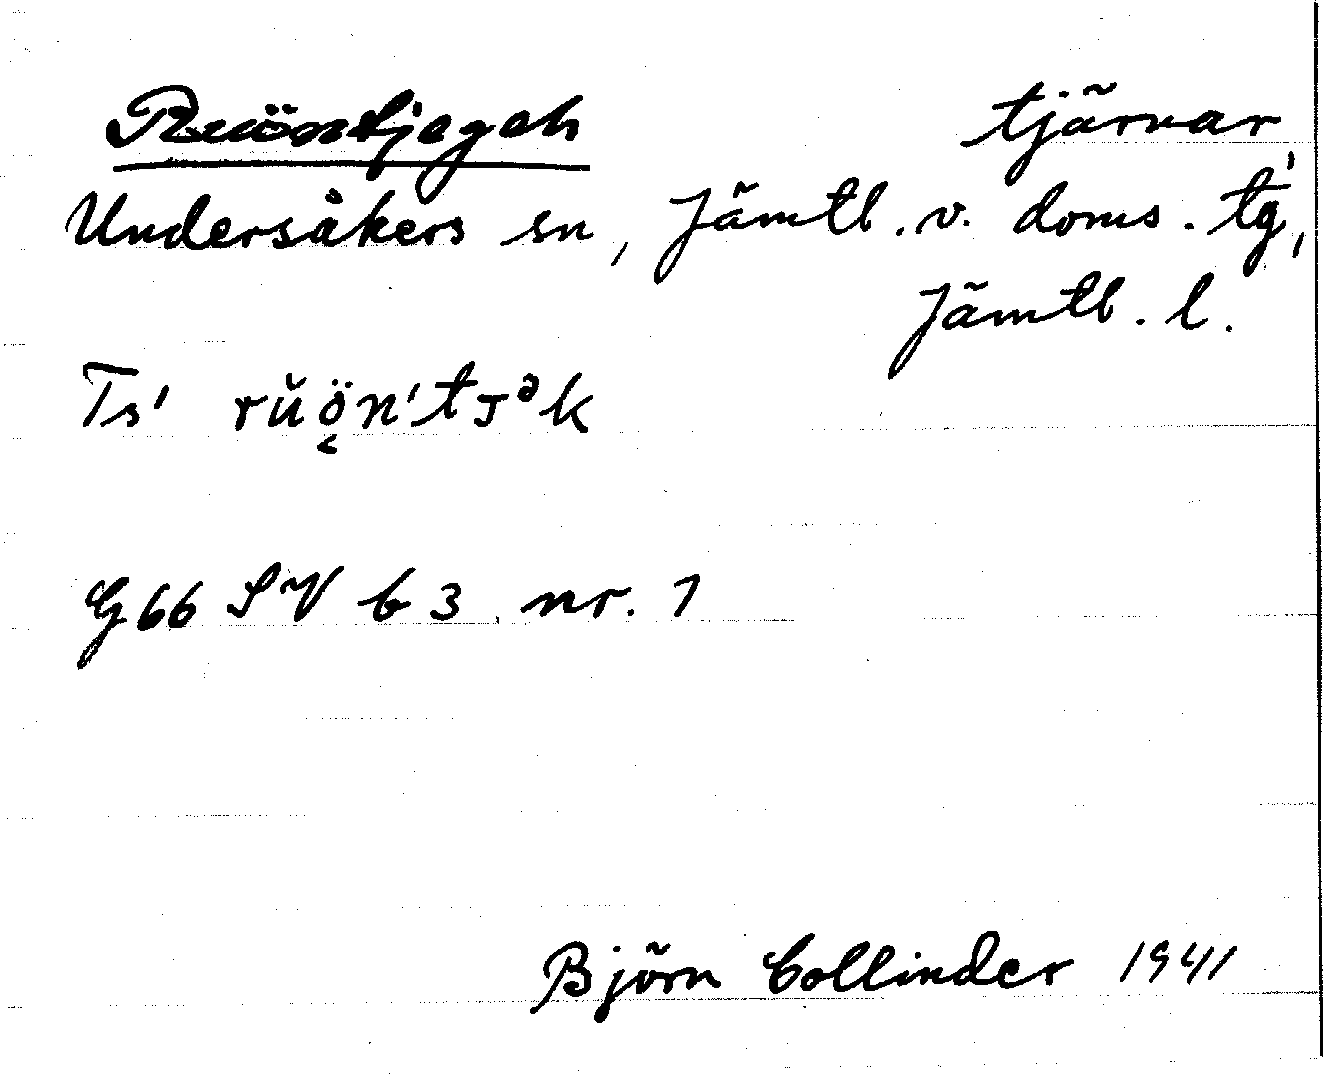 Ruöntjegeh tjärnar
Undersåkers sn, Jämtl. v. doms. tg,
Jämtl. l.
Ts' rŭö̜n'tᴊᵊk
G66 SV b 3 nr. 1
Björn Collinder 1941